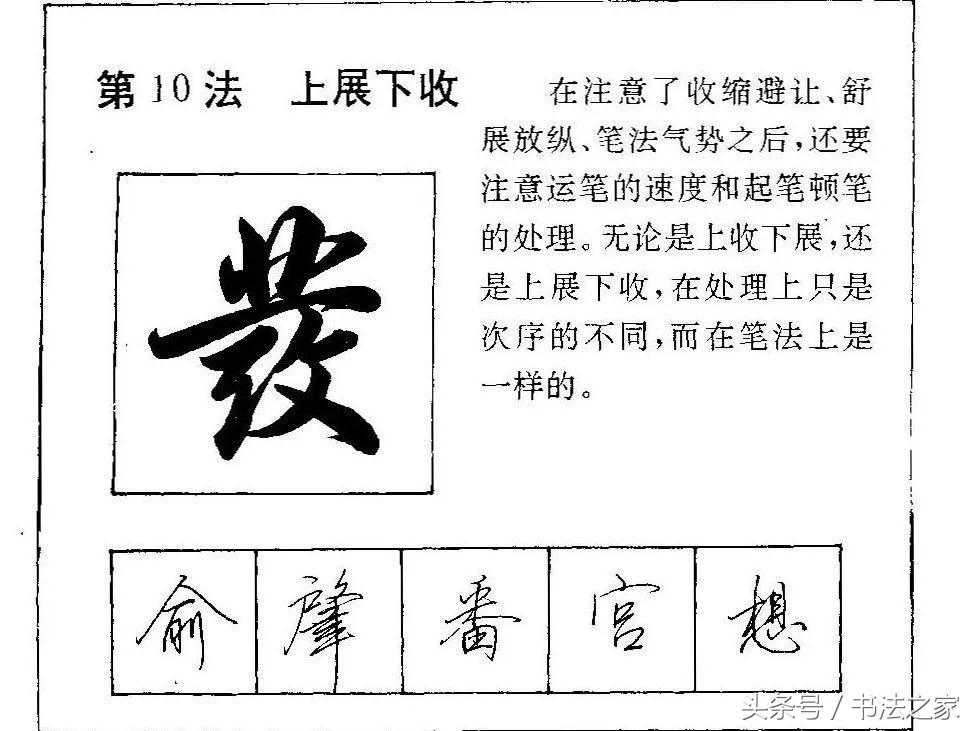 第10法 上展下收
在注意了收缩避让、舒
展放纵、笔法气势之后,还要
注意运笔的速度和起笔顿笔
的处理。无论是上收下展,还
是上展下收,在处理上只是
次序的不同,而在笔法上是
一样的。
發
俞肇番宫想
头条号 / 书法之家